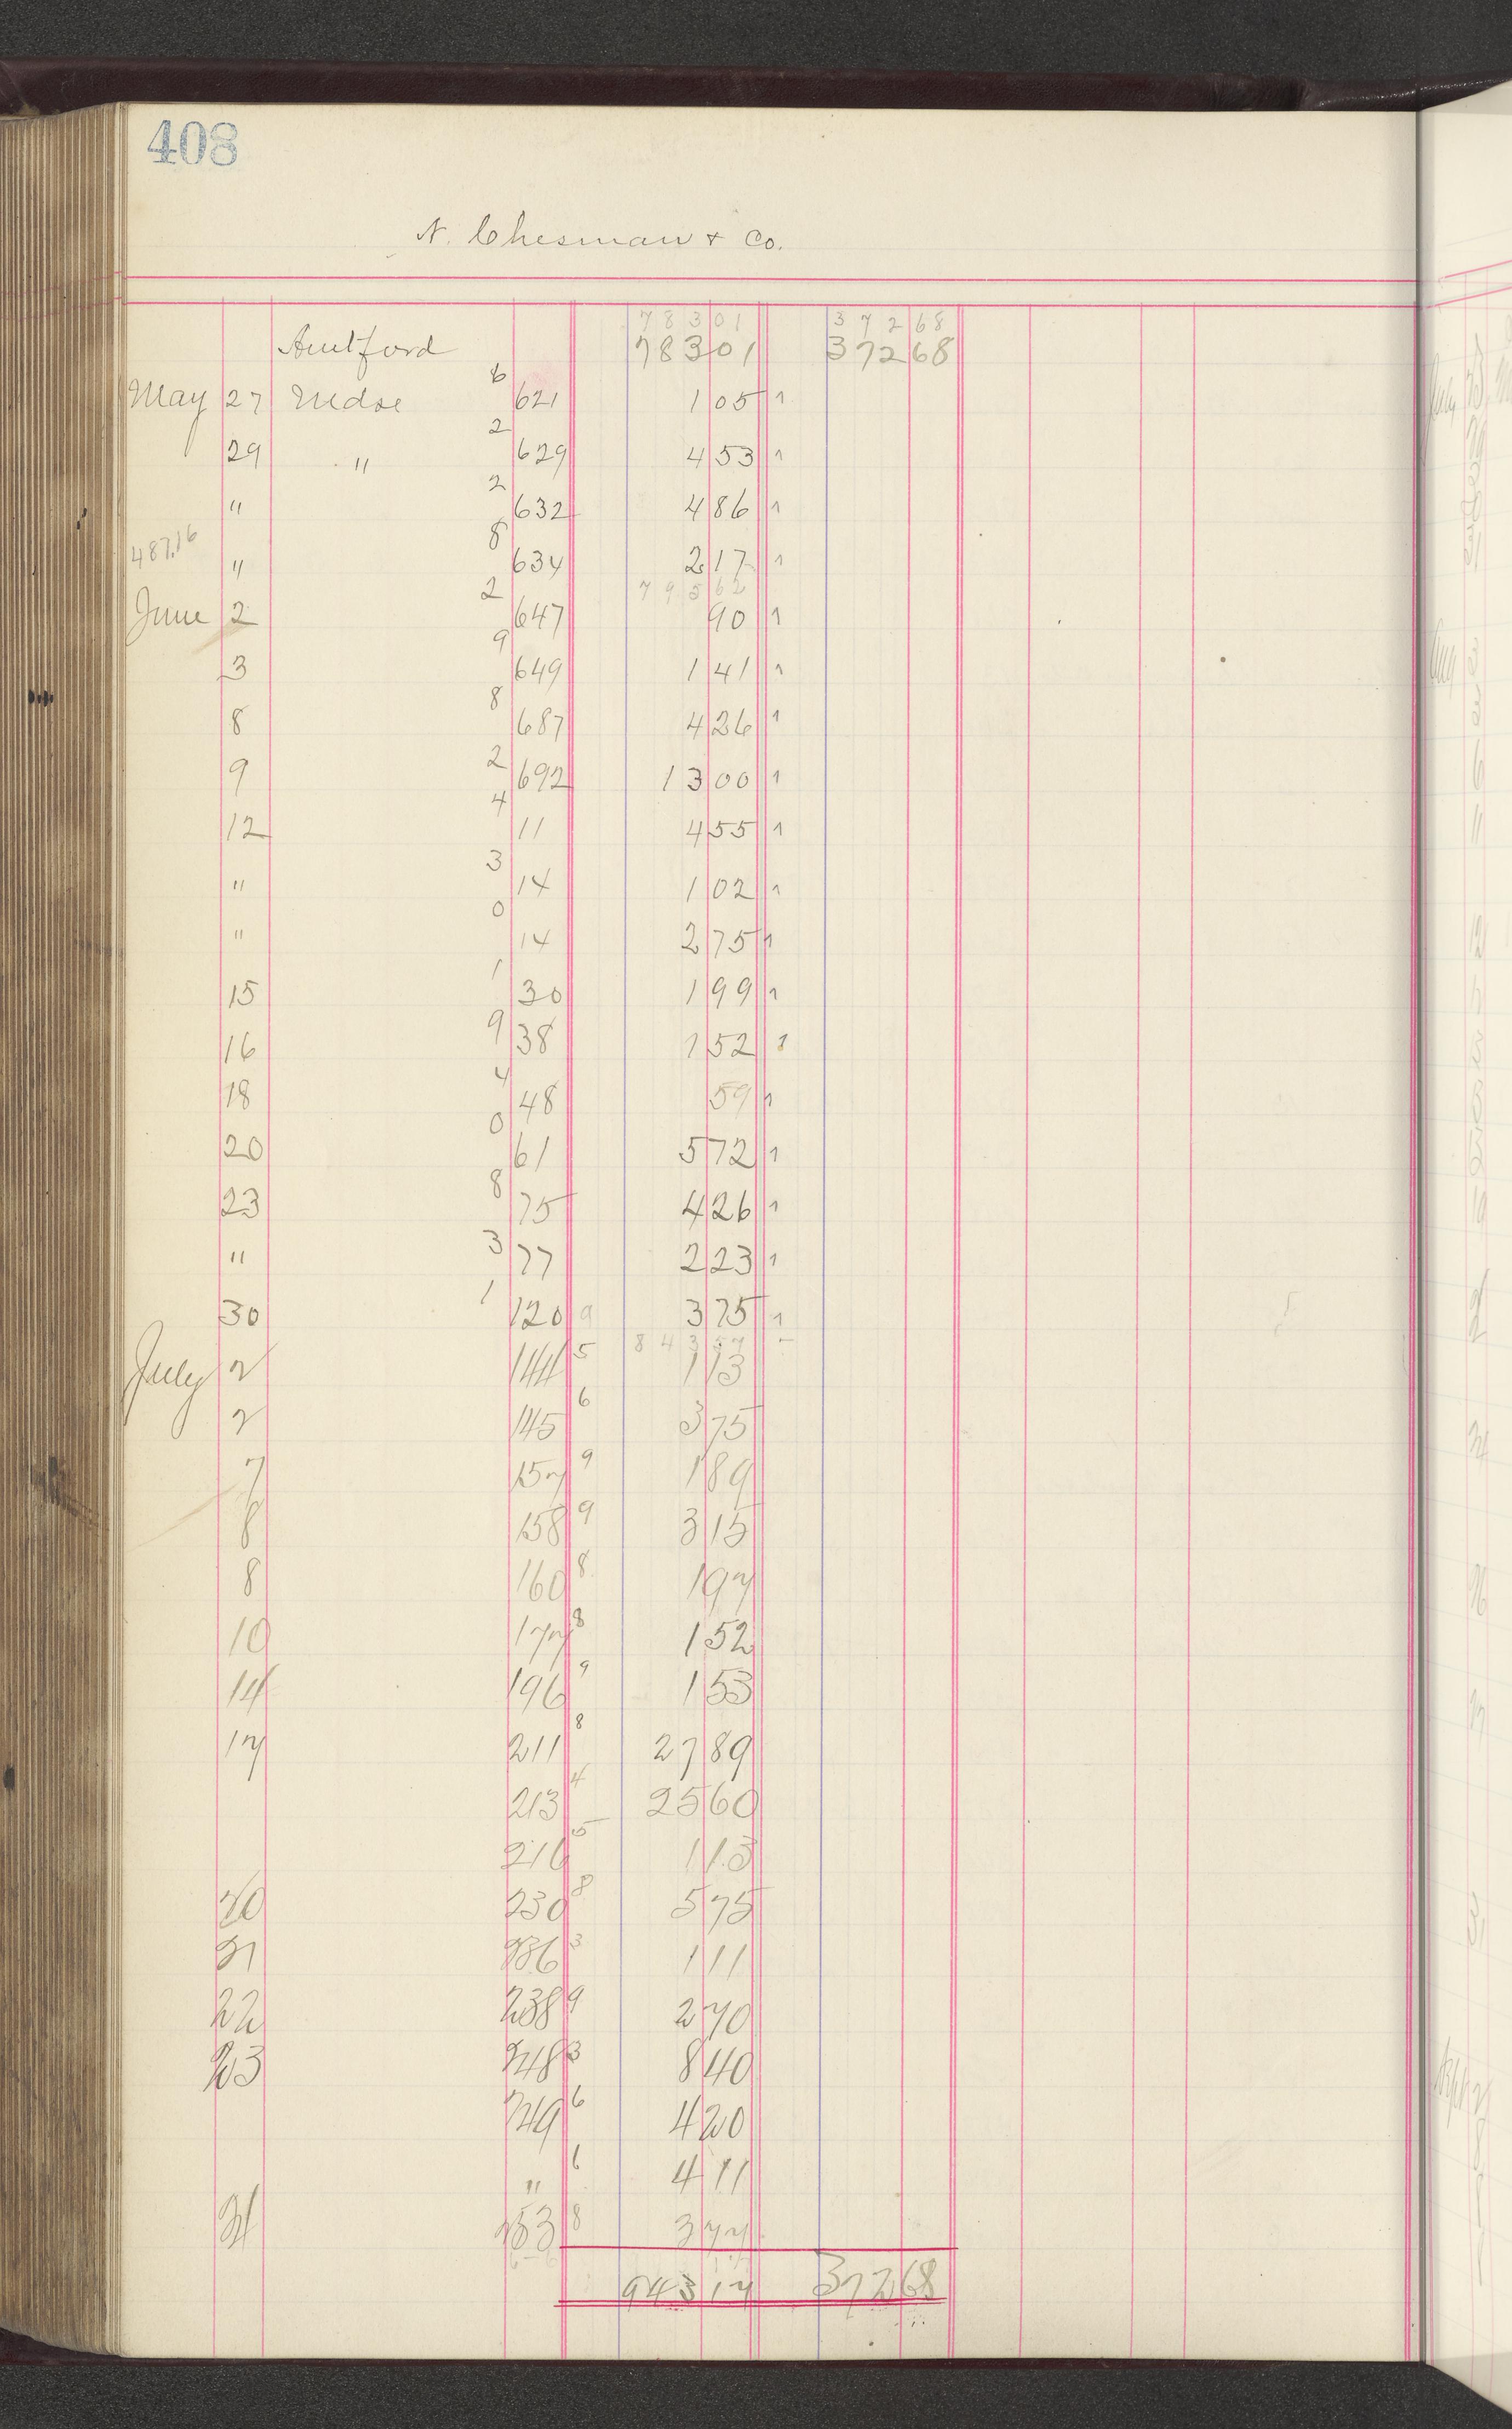 408
N. Chesman & Co.
78301 37268
Amt ford 78301 37268
May 27 Mdse 6 621 1 05 1
29 " 2 629 4 53 1
" 2 632 4 86 1
487.16 " 8 634 2 17 1
79562
June 2 2 647 90 1
3 9 649 1 41 1
8 8 687 4 26 1
9 2 692 13 00 1
12 4 11 4 55 1
" 3 14 1 02 1
" 0 14 2 75 1
15 1 30 1 99 1
16 9 38 1 52 1
18 4 48 59 1
20 0 61 5 72 1
23 8 75 4 26 1
" 3 77 2 23 1
30 1 120 9 3 75 1
84357
July 2 144 5 1 13
2 145 6 3 75
7 157 9 1 89
8 158 9 3 15
8 160 8 1 97
10 177 8 1 52
14 196 9 1 53
17 211 8 27 89
213 4 25 60
216 5 1 13
20 230 8 5 75
21 236 3 1 11
22 238 9 2 70
23 248 3 8 40
249 6 4 20
" 6 4 11
253 8 3 77
943 17 372 68